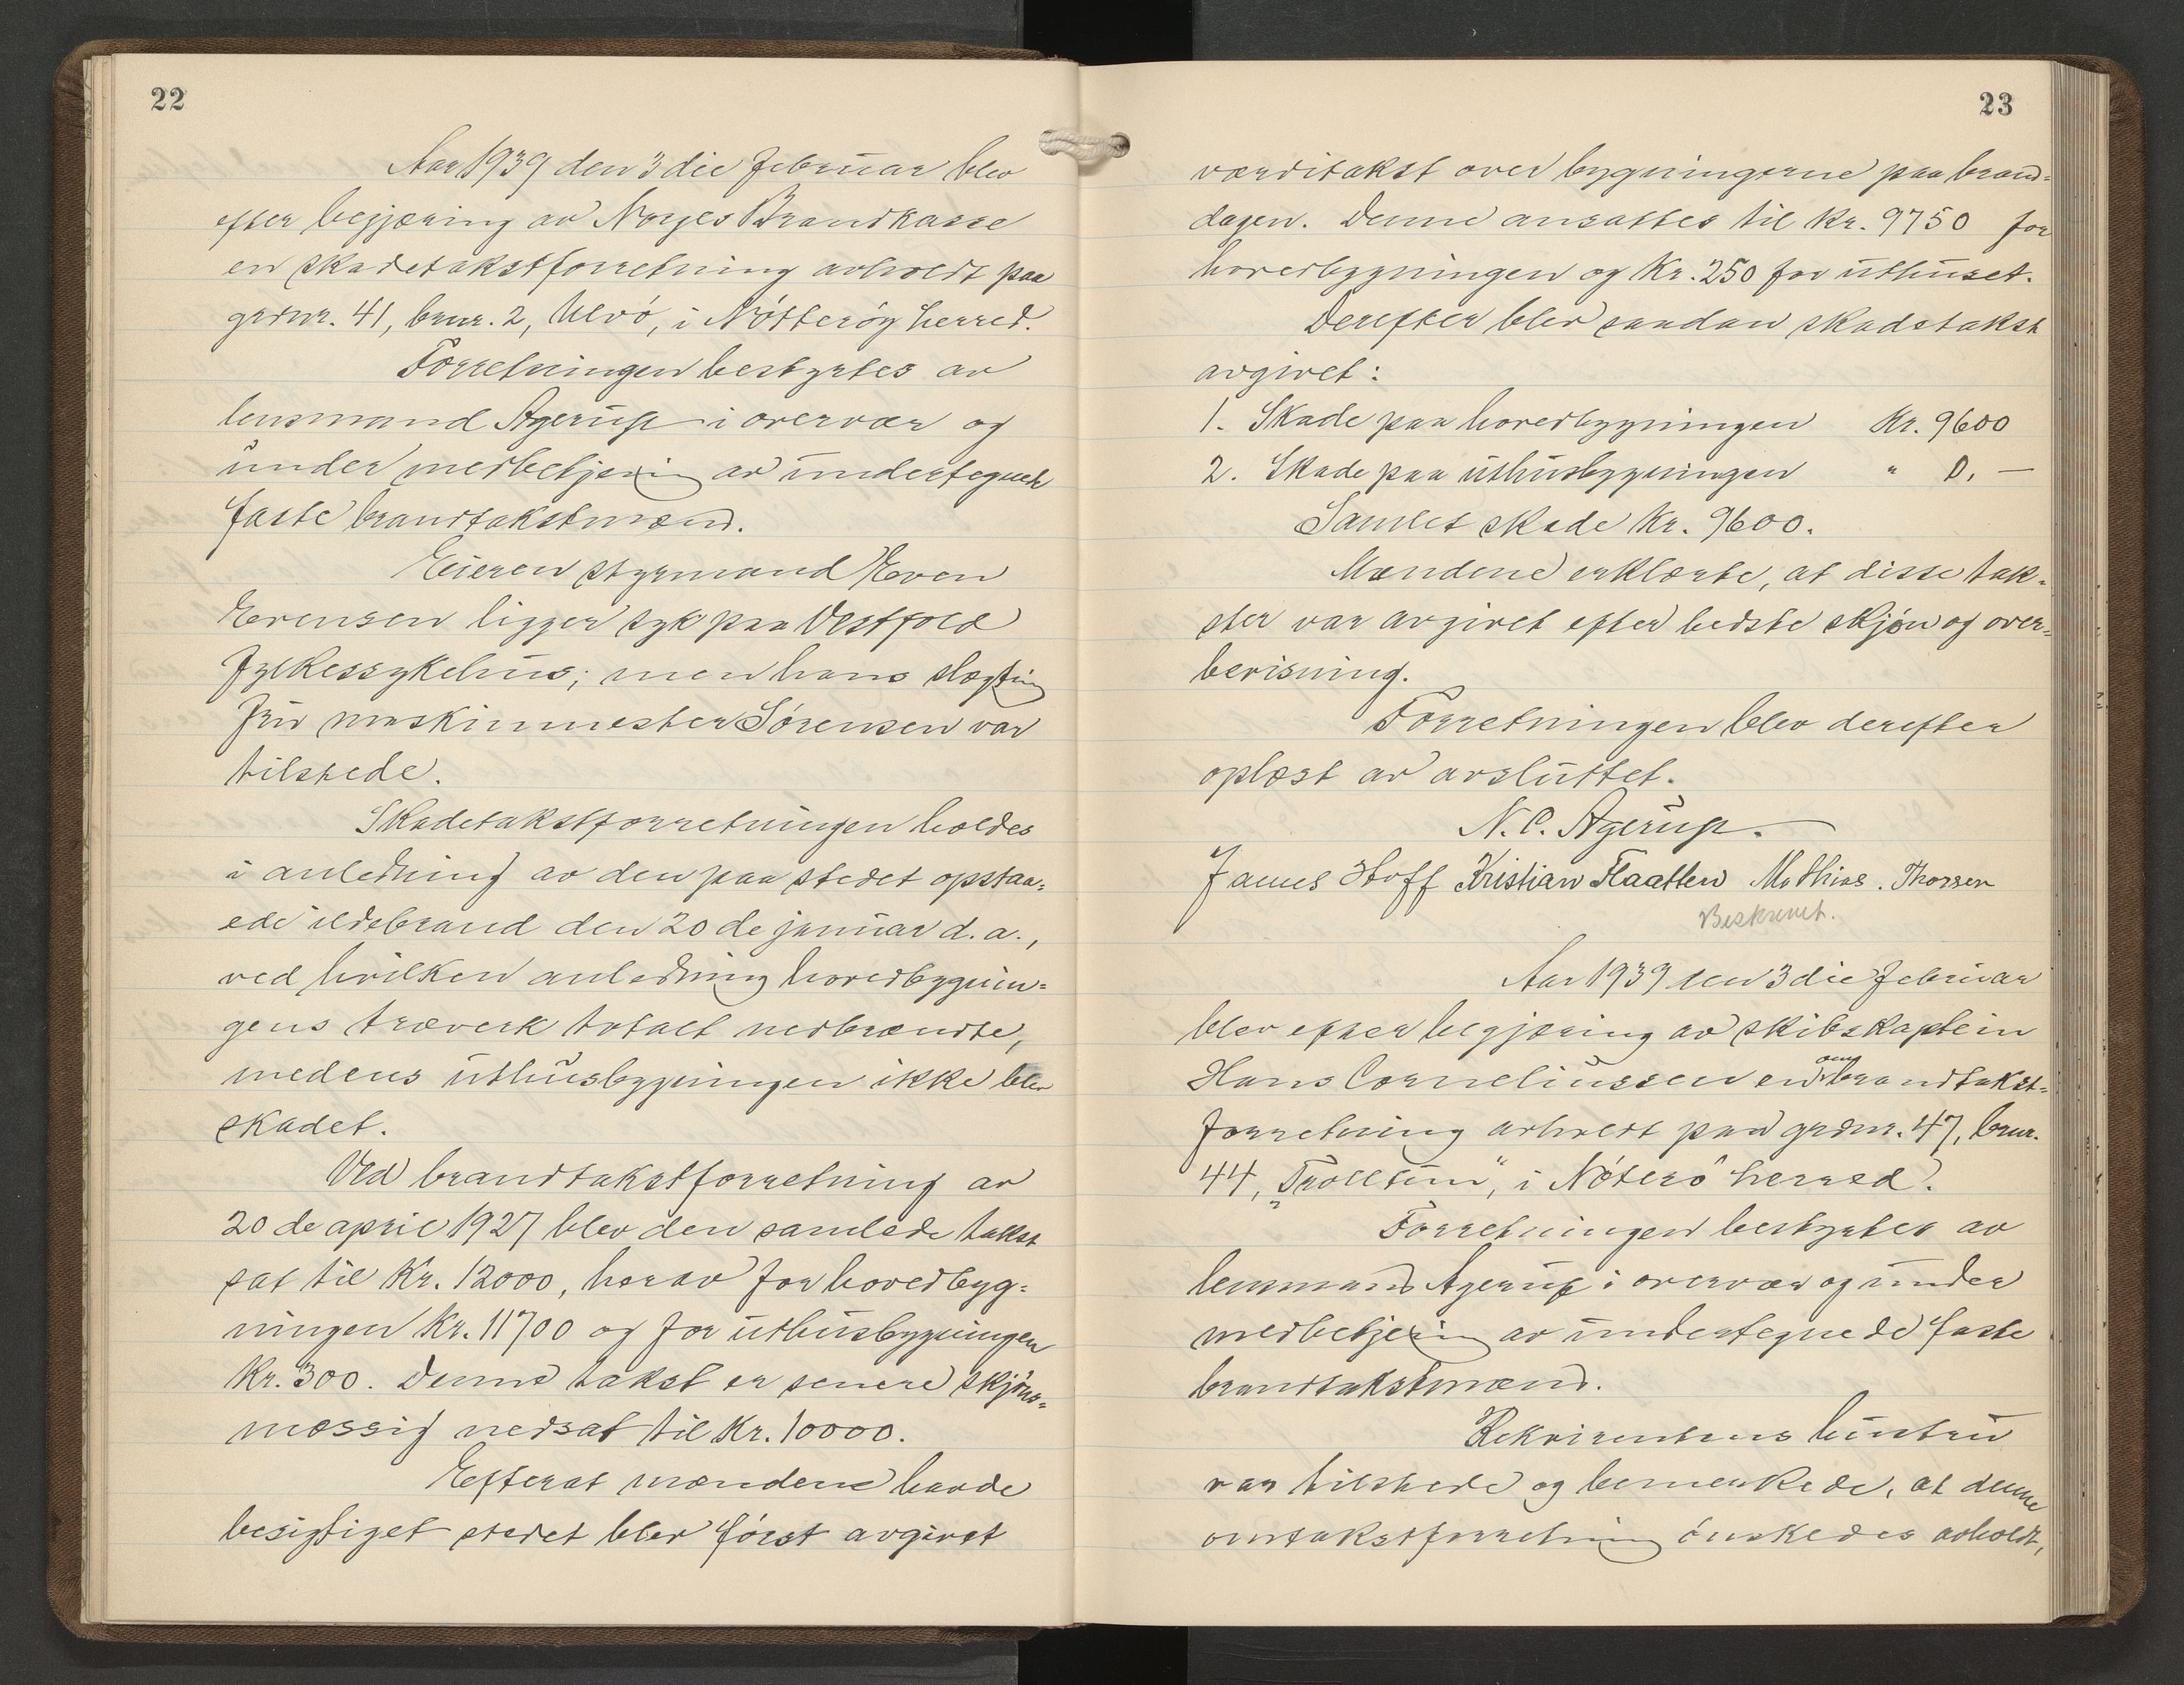 22
Aar 1939 den 3die februar blev
efter begjæring av Norges Brandkasse
en skadetakstforretning avholdt paa
grdnr. 41, brnr. 2, Ulvö, i Nötteröy herred.
Forretningen bestyrtes av
lensmand Agerup i overvær og
under medbetjening av undertegnede
faste brandtakstmænd.
Eieren styrmand Even
Evensen ligger syk paa Vestfold
fylkessykehus; men hans slægtning
fru maskinmester Sörensen var
tilstede.
Skadetakstforretningen holdes
i anledning av den paa stedet opstaa-
ede ildebrand den 20de januar d.a.,
ved hvilken anledning hovedbygnin-
gens træverk totalt nedbrændte,
medens uthusbygningen ikke blev
skadet.
Ved brandtakstforretning av
20de april 1927 blev den samlede takst
sat til Kr. 12000, herav for hovedbyg-
ningen Kr. 11700 og for uthusbygningen
Kr. 300. Denne takst er senere skjöns-
mæssig nedsat til Kr. 10000.
Efterat mændene havde
besigtiget stedet blev först avgivet
23
værditakst over bygningerne paa brand-
dagen. Denne ansattes til Kr. 9750 for
hovedbygningen og Kr. 250 for uthuset.
Derefter blev saadan skadetakst
avgivet:
1. Skade paa hovedbygningen Kr. 9600
2. Skade paa uthusbygningen " 0. —
Samlet skade Kr. 9600.
Mændene erklærte, at disse tak-
ster var avgivet efter bedste skjön og over-
bevisning.
Forretningen blev derefter
oplæst av avsluttet.
N. C. Agerup.
James Hoff Kristian Flaatten Mathias. Thorsen
Beskrevet.
Aar 1939 den 3die februar
blev efter begjæring av skibskaptein
Hans Corneliussen en ombrandtakst-
forretning avholdt paa grdnr. 47, brnr.
44, "Trolltun", i Nöterö herred.
Forretningen bestyrtes av
lensmand Agerup i overvær og under
medbetjening av undertegnede faste
brandtakstmænd.
Rekvirentens hustru
var tilstede og bemerkede, at denne
omtakstforretning önskedes avholdt,